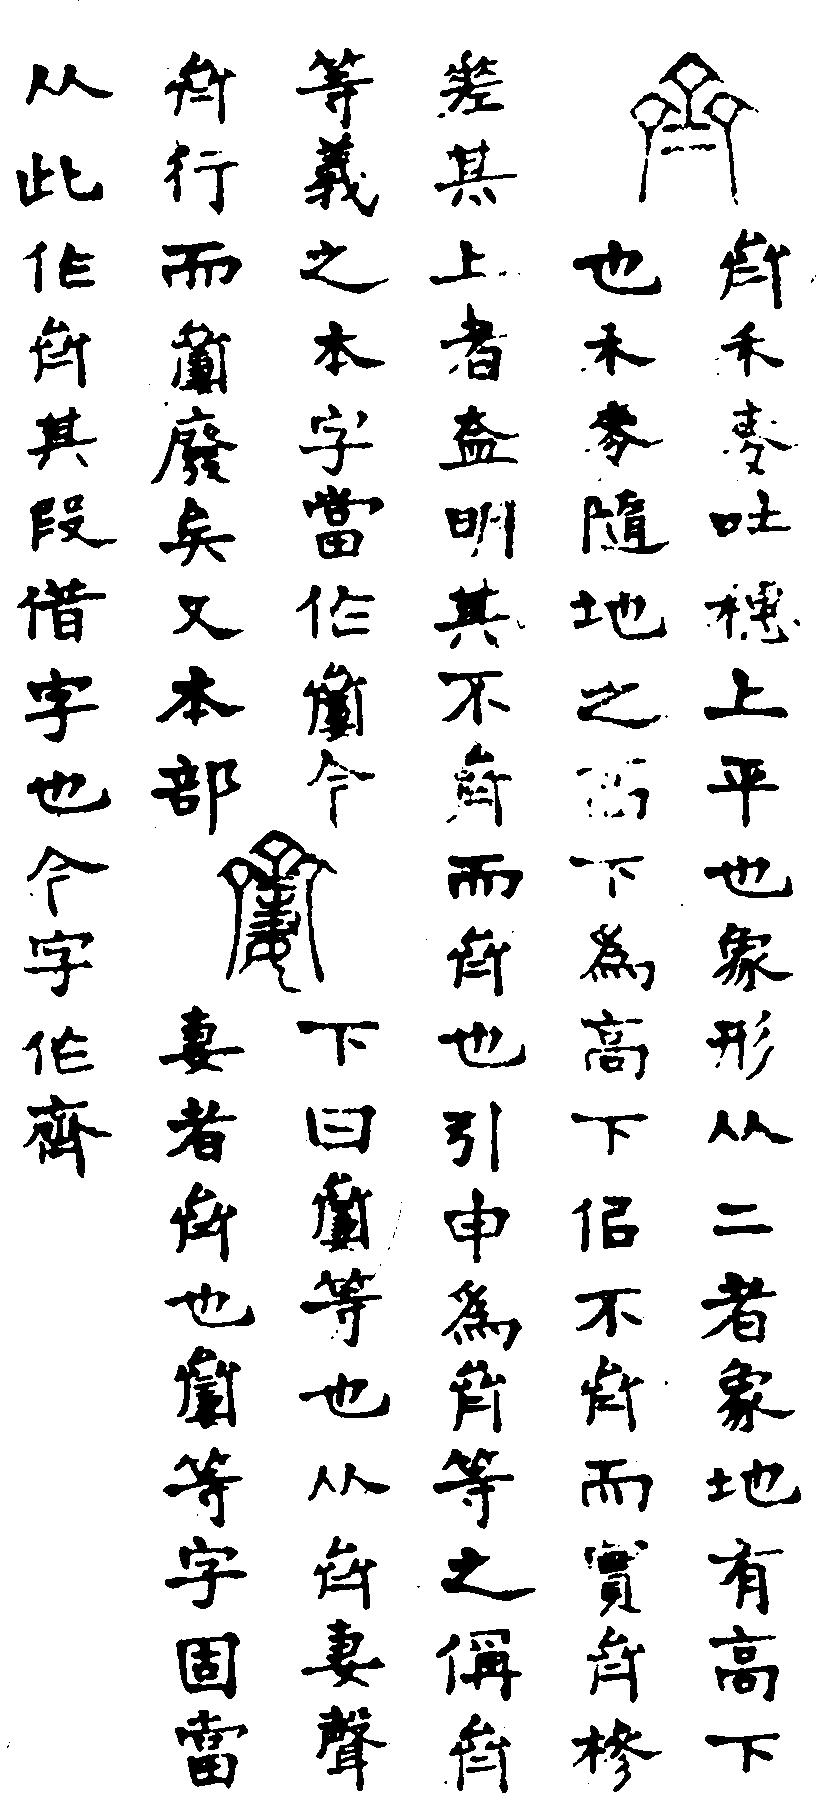 齊
齊禾麥吐穗上平也象形从二者象地有高下
也禾麥隨地之高下爲高下佀不齊而實齊槮
差其上者盇明其不齊而齊也引申爲齊等之偁齊
等義之本字當作𪗍今
齊行而𪗍廢矣又本部
𪗍
下曰𪗍等也从齊妻聲
妻者齊也𪗍等字固當
从此作齊其叚借字也今字作齊